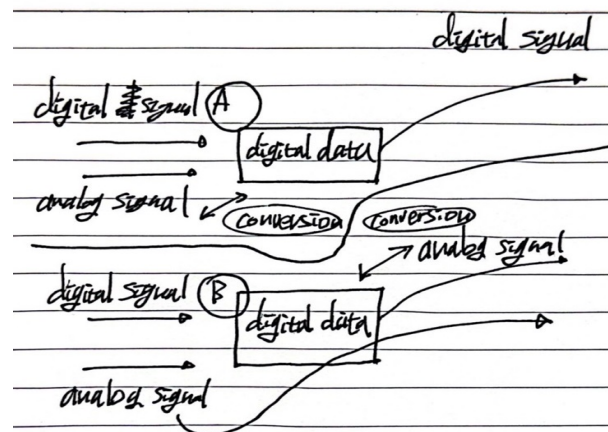 digital signal
digital signal A
digital data
analog signal
conversion conversion
analog signal
digital signal B
digital data
analog signal